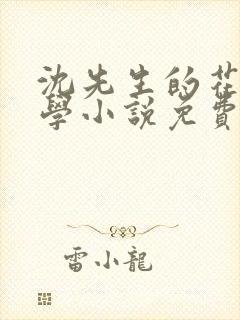 沈先生的花
學小說免費
雷小龍